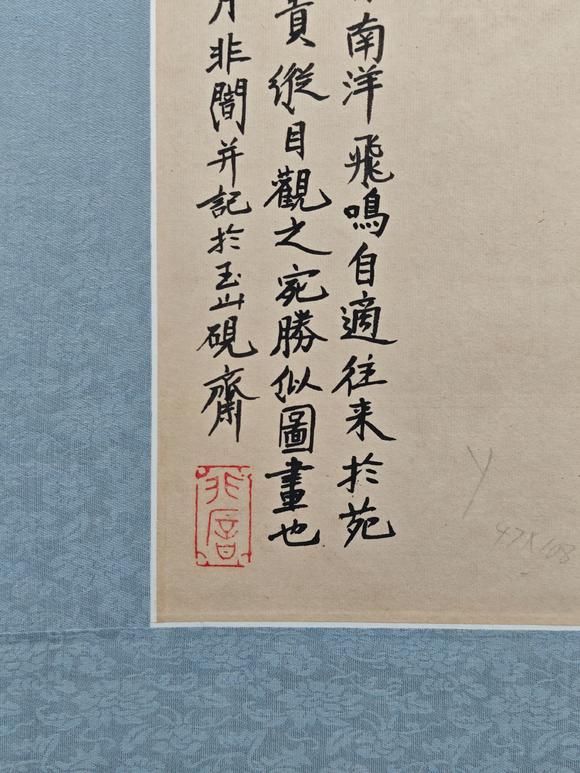 南洋飛鳴自適往来於苑
貢縱目觀之宛勝似圖畫也
月非闇并記於玉山硯齋
非闇
Y
47X108